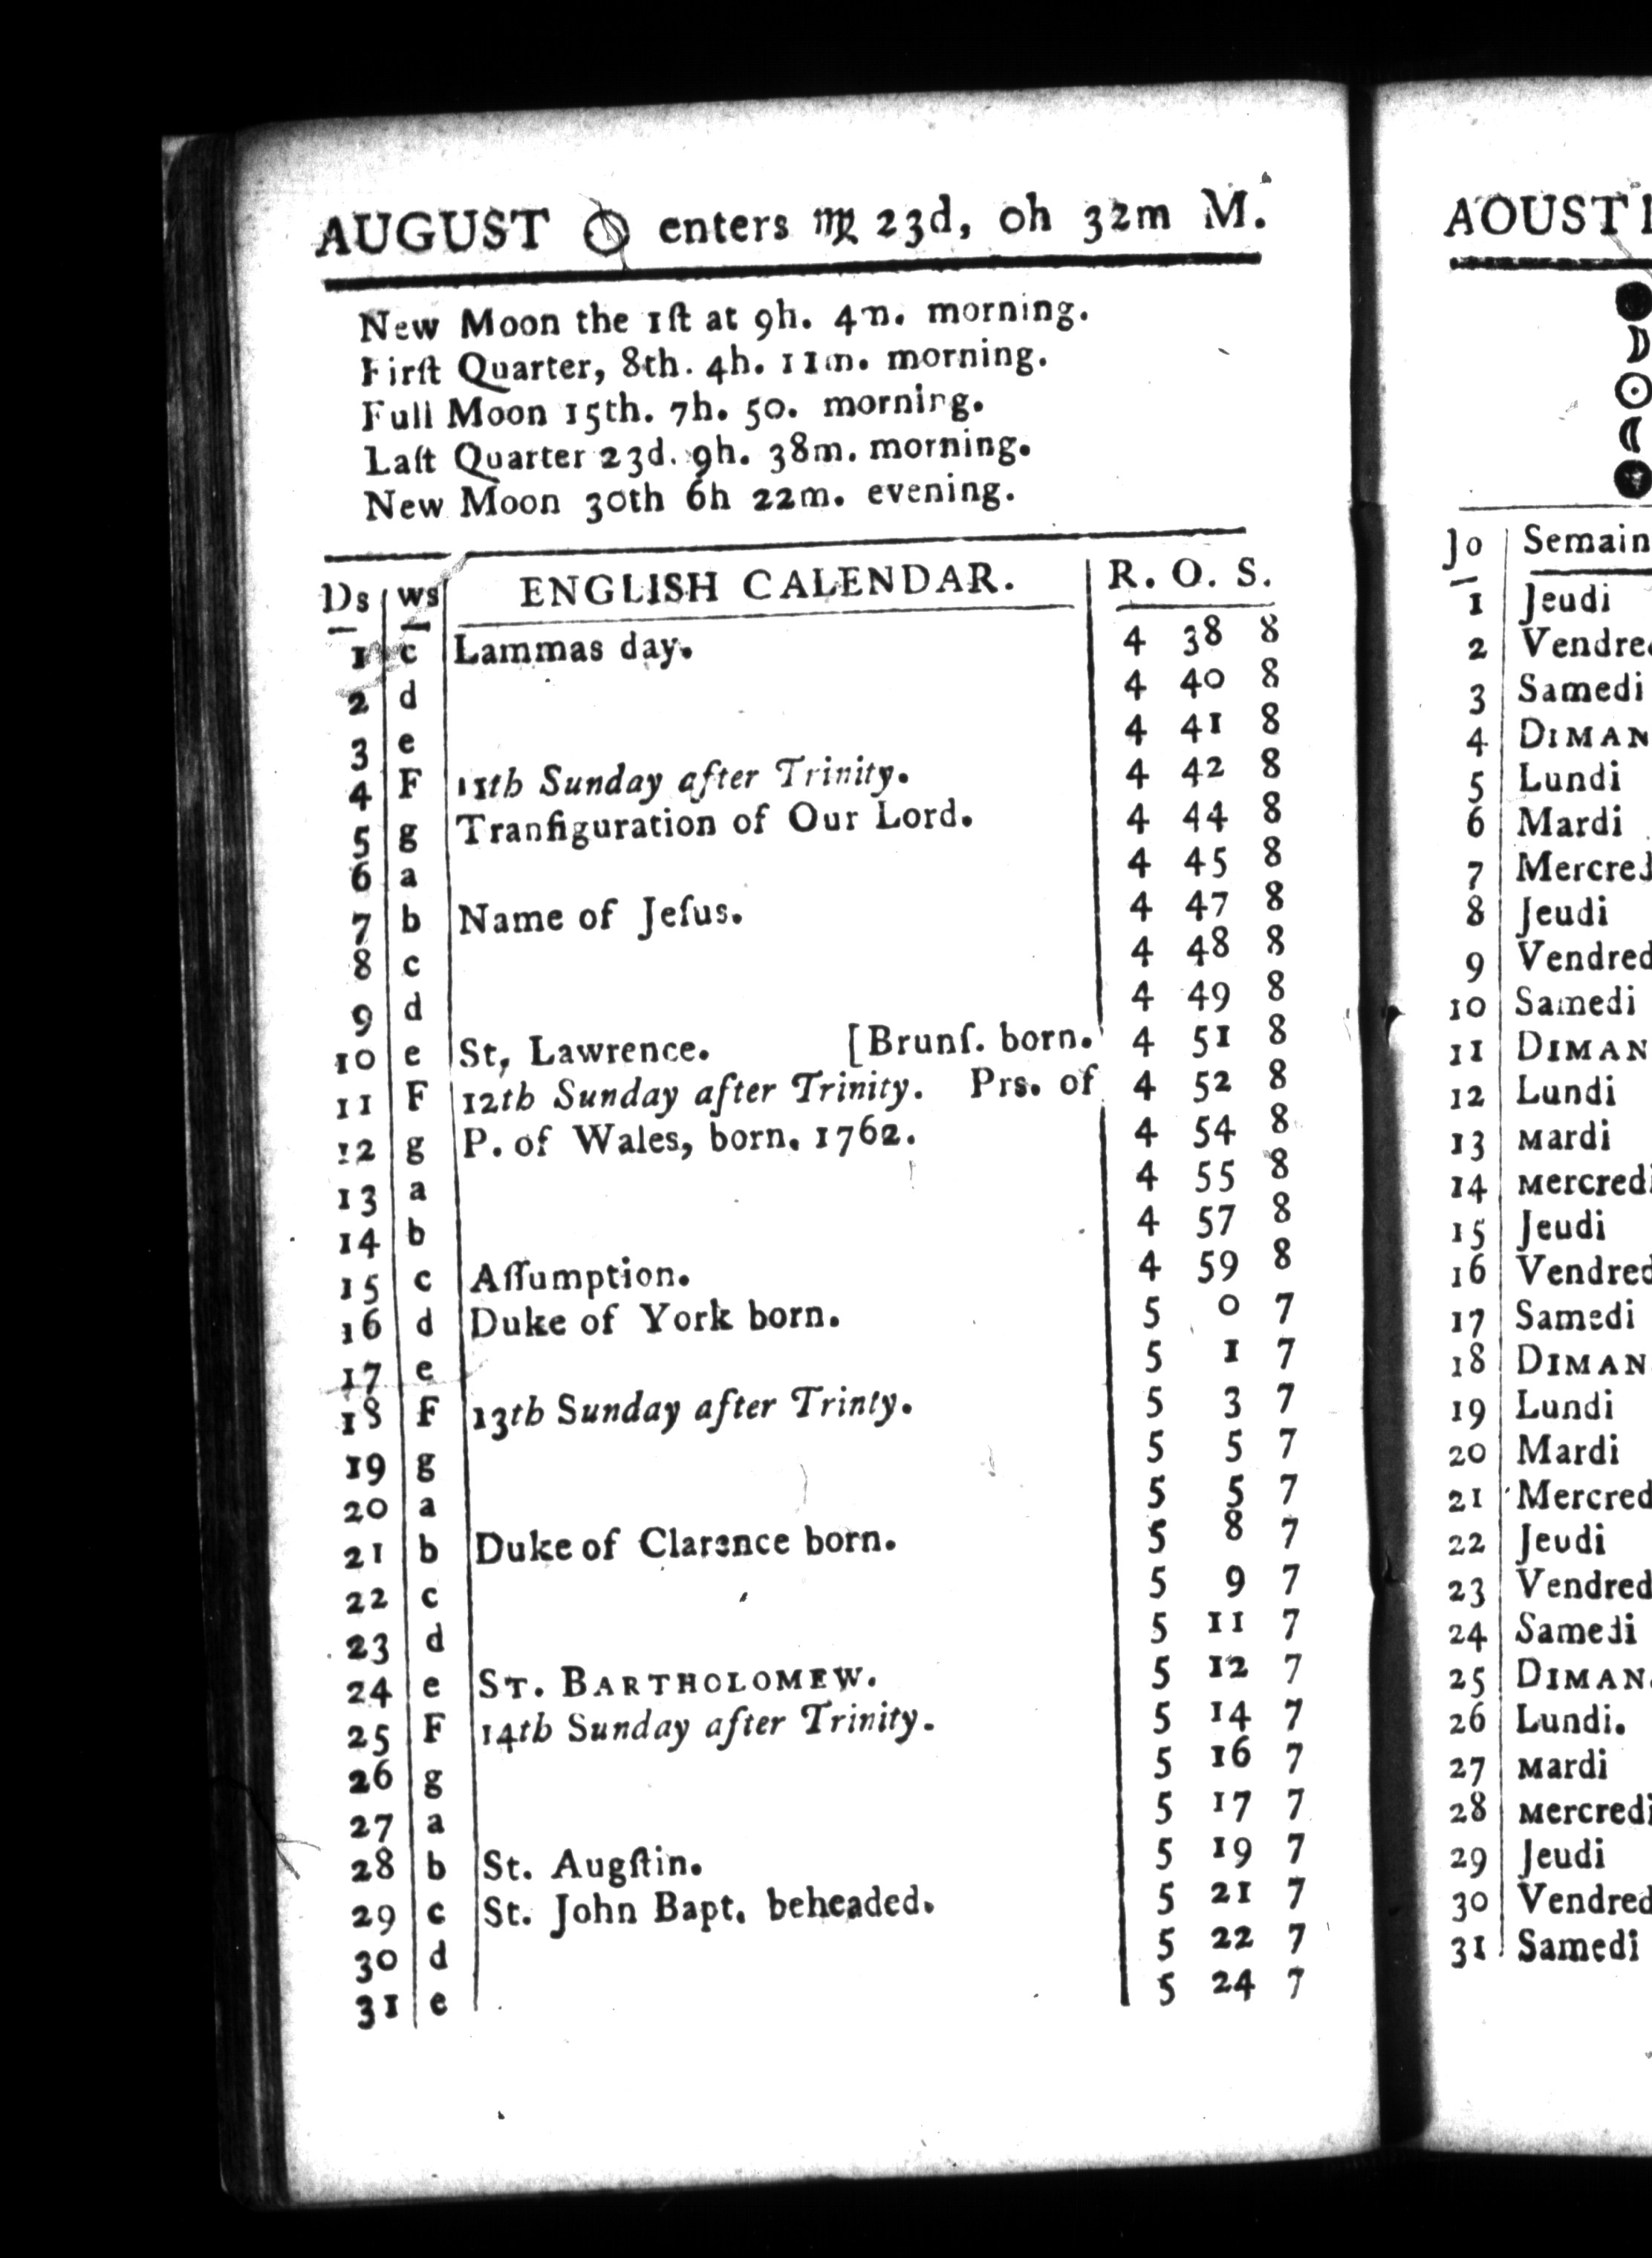 AUGUST ☉ enters ♍ 23d, 0h 32m M.
New Moon the 1ſt at 9h. 4m. morning.
Firſt Quarter, 8th. 4h. 11m. morning.
Full Moon 15th. 7h. 50. morning.
Laſt Quarter 23d. 9h. 38m. morning.
New Moon 30th 6h 22m. evening.
Ds ws ENGLISH CALENDAR. R. O. S.
1 c Lammas day. 4 38 8
2 d 4 40 8
3 e 4 41 8
4 F 11th Sunday after Trinity. 4 42 8
5 g Tranfiguration of Our Lord. 4 44 8
6 a 4 45 8
7 b Name of Jeſus. 4 47 8
8 c 4 48 8
9 d 4 49 8
10 e St, Lawrence. [Brunſ. born. 4 51 8
11 F 12th Sunday after Trinity. Prs. of 4 52 8
12 g P. of Wales, born. 1762. 4 54 8
13 a 4 55 8
14 b 4 57 8
15 c Aſſumption. 4 59 8
16 d Duke of York born. 5 0 7
17 e 5 1 7
18 F 13th Sunday after Trinty. 5 3 7
19 g 5 5 7
20 a 5 5 7
21 b Duke of Clarence born. 5 8 7
22 c 5 9 7
23 d 5 11 7
24 e ST. BARTHOLOMEW. 5 12 7
25 F 14th Sunday after Trinity. 5 14 7
26 g 5 16 7
27 a 5 17 7
28 b St. Augſtin. 5 19 7
29 c St. John Bapt. beheaded. 5 21 7
30 d 5 22 7
31 e 5 24 7
AOUST
●
☽
☉
☾
●
Jo Semain
1 Jeudi
2 Vendre
3 Samedi
4 DIMAN
5 Lundi
6 Mardi
7 Mercred
8 Jeudi
9 Vendred
10 Samedi
11 DIMAN
12 Lundi
13 Mardi
14 Mercredi
15 Jeudi
16 Vendred
17 Samedi
18 DIMAN
19 Lundi
20 Mardi
21 Mercred
22 Jeudi
23 Vendred
24 Samedi
25 DIMAN.
26 Lundi.
27 Mardi
28 Mercredi
29 Jeudi
30 Vendred
31 Samedi